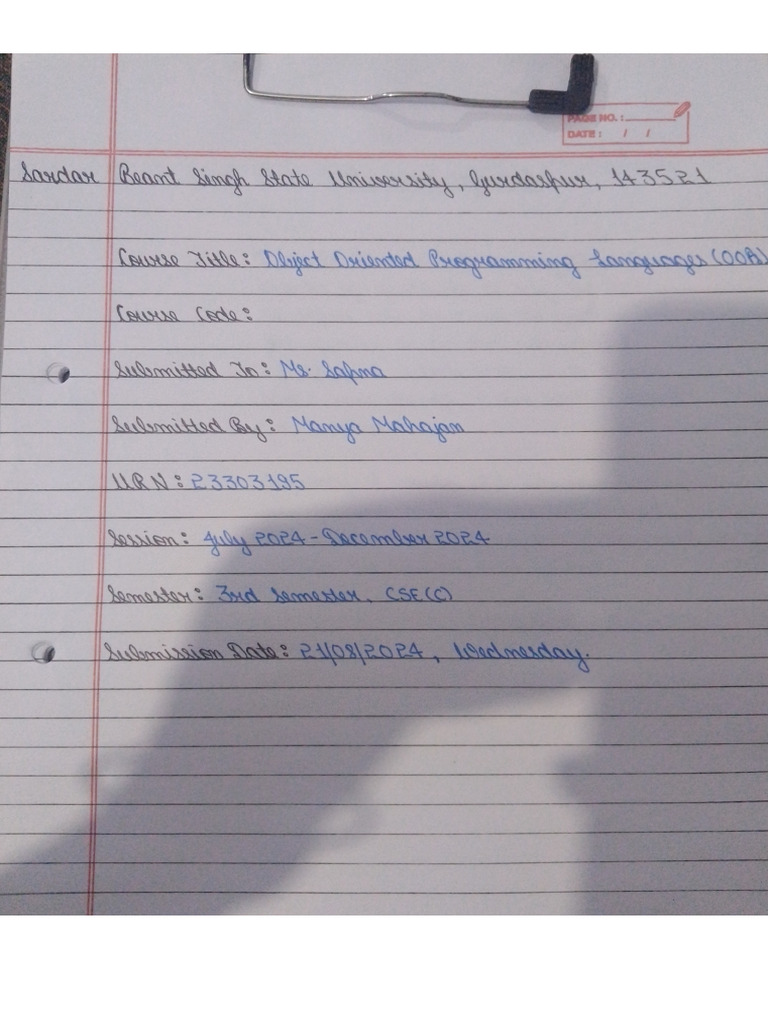 PAGE NO. :
DATE : / /
Sardar Beant Singh State University, Gurdaspur, 143521
Course Title: Object Oriented Programming Languages (OOP)
Course Code:
Submitted To: Ms. Sapna
Submitted By: Manya Mahajan
URN: 23303195
Session: July 2024 - December 2024
Semester: 3rd Semester, CSE(C)
Submission Date: 21/08/2024, Wednesday.